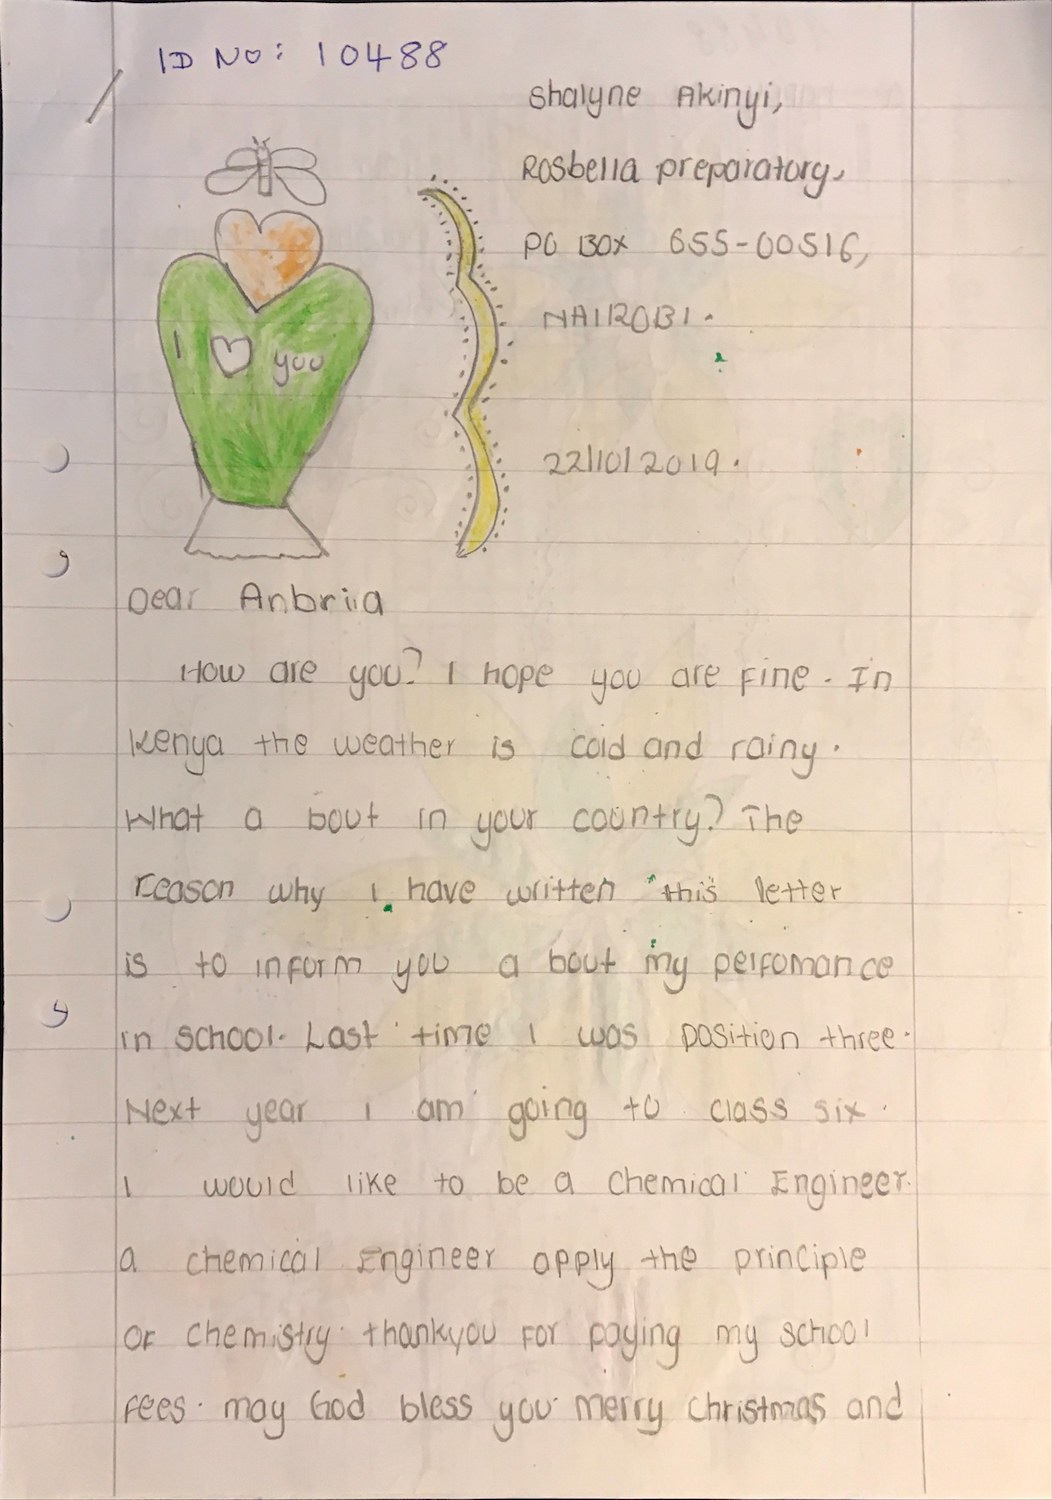 ID No: 10488
Shalyne Akinyi,
Rosbella preparatory,
PO BOX 655-00516,
NAIROBI.
I you
22/10/2019.
Dear Anbriia
How are you? I hope you are fine. In
Kenya the weather is cold and rainy.
What a bout in your country? The
reason why I have written this letter
is to inform you a bout my perfomance
in school. Last time I was position three.
Next year I am going to class six.
I would like to be a Chemical Engineer.
a chemical Engineer apply the principle
OF chemistry. thankyou for paying my school
fees. may God bless you. merry christmas and